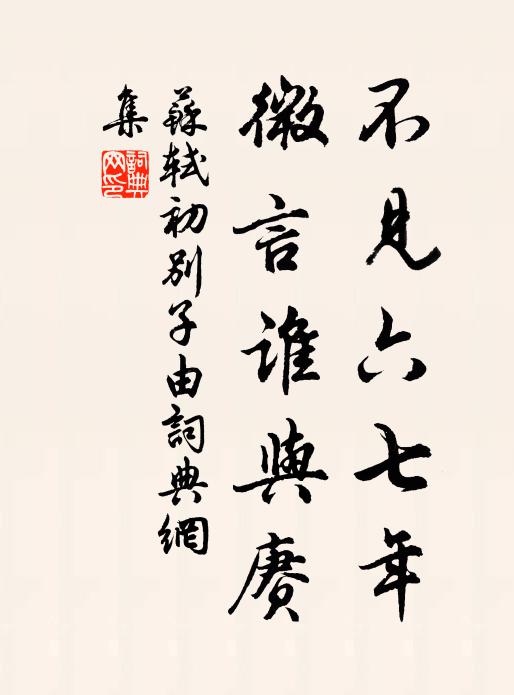 不見六七年
微言誰與賡
蘇軾初別子由詞典網
集
詞典網印